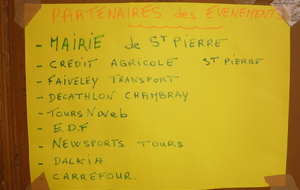 PARTENAIRES des EVENEMENTS
- MAIRIE de ST PIERRE
- CREDIT AGRICOLE ST PIERRE
- FAIVELEY TRANSPORT
- DECATHLON CHAMBRAY
- TOURS
- E.D.F
- NEWSPORTS TOURS
- DALKIA
- CARREFOUR.